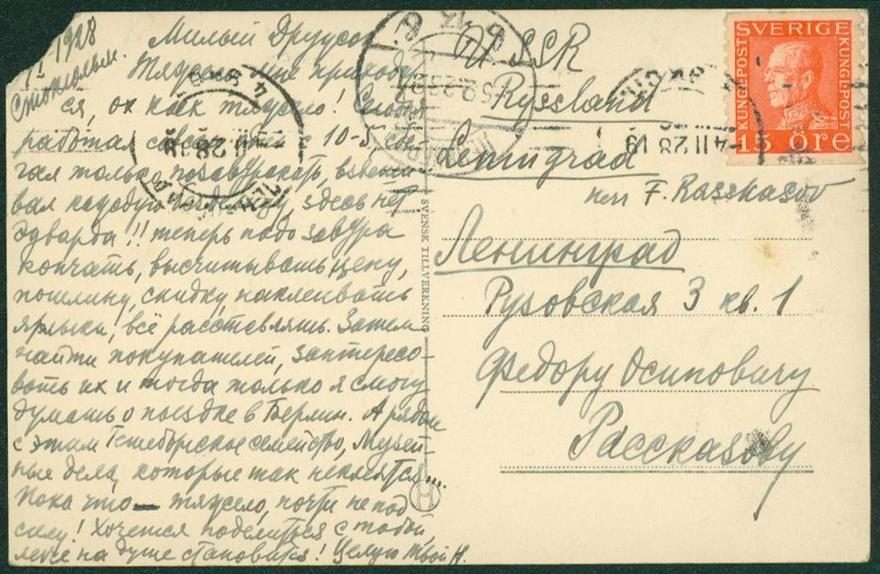 1928
Стокгольм.
Милый Друусо
Тяжело мне приходит-
ся, ох как тяжело! Сегодня
работал с 10-5, 
только взвеши
вал каждую здесь нет
Эдварда!! теперь надо завтра
кончать, высчитывать цену,
пошлину, скидку, наклеивать
ярлыки, всё расставлять. Затем
найти покупателей, заинтересо-
вать их и тогда только я смогу
думать о поездке в Берлин. А рядом
с этим Гетеборгское семейство, Музей-
ные дела, которые так не клеятся...
Пока что — тяжело, почти не под
силу! Хочется поделиться с тобой,
легче на душе становится! Целую твой Н.
SVENSK TILLVERKNING
USSR
Ryssland
Leningrad
Herr F. Rasskasov
Ленинград
Рузовская 3 кв. 1
Федору Осиповичу
Рассказову
SVERIGE
KUNGL. POST
KUNGL. POST
15 ÖRE